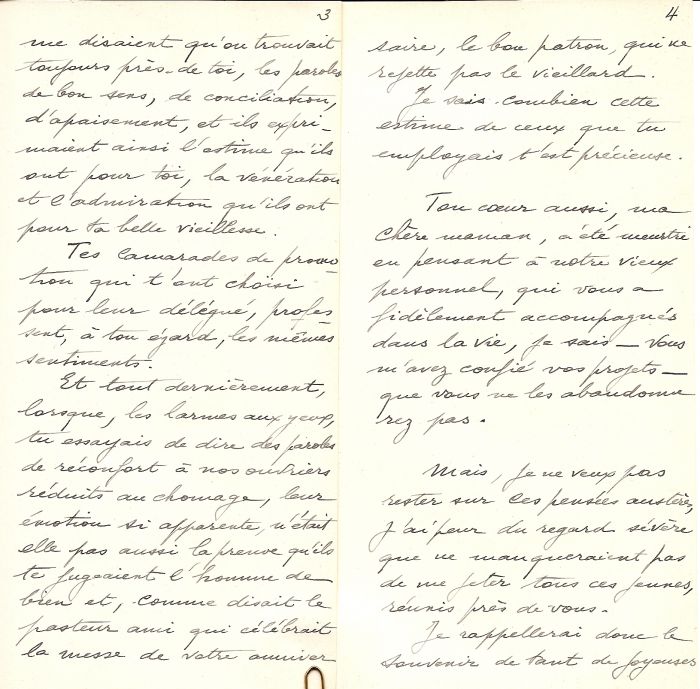 3
me disaient qu'on trouvait
toujours près de toi, les paroles
de bon sens, de conciliation,
d'apaisement, et ils expri-
maient ainsi l'estime qu'ils
ont pour toi, la vénération
et l'admiration qu'ils ont
pour ta belle vieillesse.
Tes camarades de promo-
tion qui t'ont choisi
pour leur délégué, profes
sent, à ton égard, les mêmes
sentiments.
Et tout dernièrement,
lorsque, les larmes aux yeux,
tu essayais de dire des paroles
de réconfort à nos ouvriers
réduits au chomage, leur
émotion si apparente, n'était
elle pas aussi la preuve qu'ils
te jugeaient l'homme de
bien et, comme disait le
pasteur ami qui célébrait
la messe de votre anniver
4
saire, le bon patron, qui ne
rejette pas le vieillard.
Je sais combien cette
estime de ceux que tu
employais t'est précieuse.
Ton cœur aussi, ma
chère maman, a été meurtri
en pensant à notre vieux
personnel, qui vous a
fidèlement accompagnés
dans la vie, je sais — vous
m'avez confié vos projets —
que vous ne les abandonne
rez pas.
Mais, je ne veux pas
rester sur ces pensées austères,
j'ai peur du regard sévère
que ne manqueraient pas
de me jeter tous ces jeunes,
réunis près de vous.
Je rappellerai donc le
souvenir de tant de joyeuses